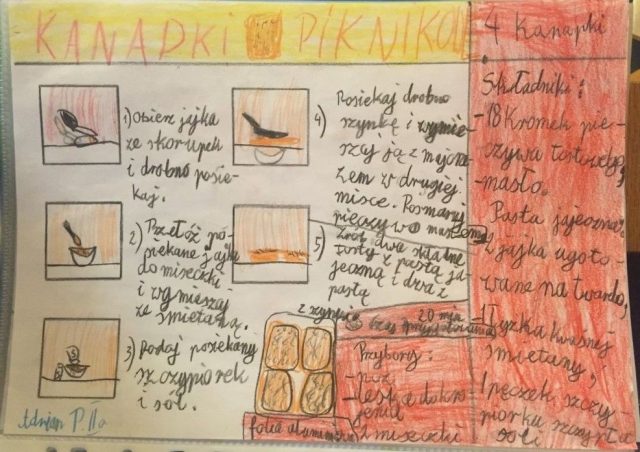 KANAPKI PIKNIKOWE
1) Obierz jajka
ze skorupek
i drobno posie-
kaj.
2) Przełóż po-
siekane jajka
do miseczki
i wymieszaj
ze śmietaną.
3) Dodaj posiekany
szczypiorek
i sól.
4) Posiekaj drobno
szynkę i wymie-
szaj ją z
w drugiej
misce. Posmaruj
pieczywo masłem
5) Zrób dwa
tosty z pastą ja-
jeczną i dwa z
pastą
z szynki
20 min
czas przygotowania
Przybory:
- nóż
- deska do kro-
jenia
2 miseczki
folia aluminiowa
4 Kanapki
Składniki:
- 18 Kromek pie-
czywa tostowego,
- masło.
Pasta jajeczna:
2 jajka ugoto-
wane na twardo,
1 łyżka kwaśnej
śmietany,
1 pęczek szczy-
piorku szczypta
soli
Adrian P. IIa